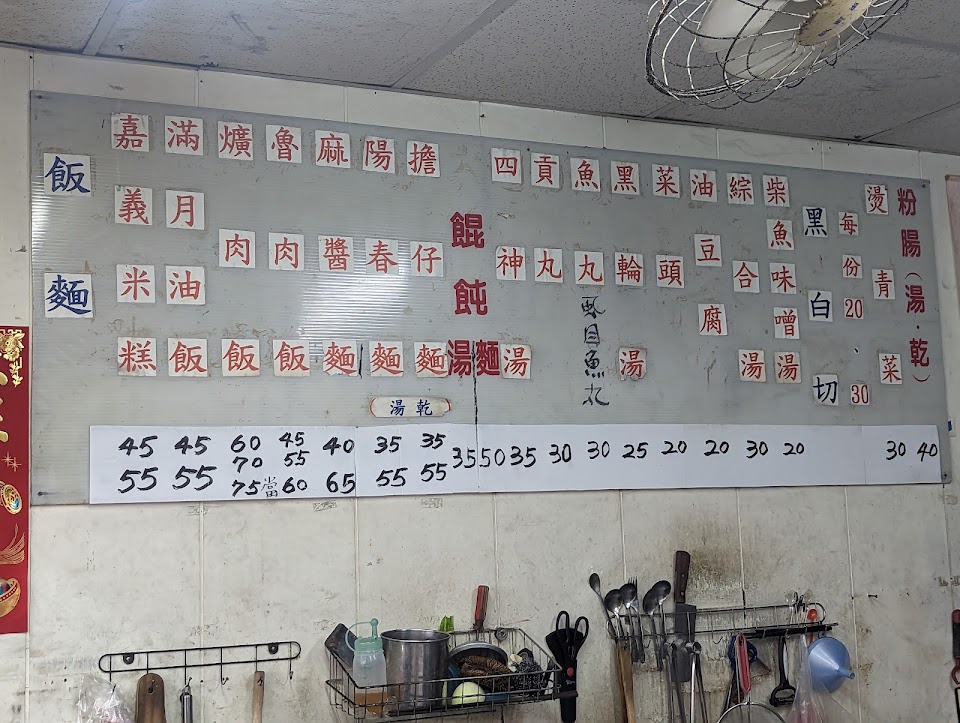 飯
麵
嘉義米糕
滿月油飯
爌肉飯
魯肉飯
麻醬麵
陽春麵
擔仔麵
湯乾
餛飩湯麵
四神湯
貢丸
魚丸
虱目魚丸
黑輪湯
菜頭
油豆腐
綜合湯
柴魚味噌湯
黑白切
每份20
30
燙青菜
粉腸(湯.乾)
45 45 60 45 40 35 35 35 50 35 30 30 25 20 20 30 20 30 40
70 55
55 55 75當 60 65 55 55